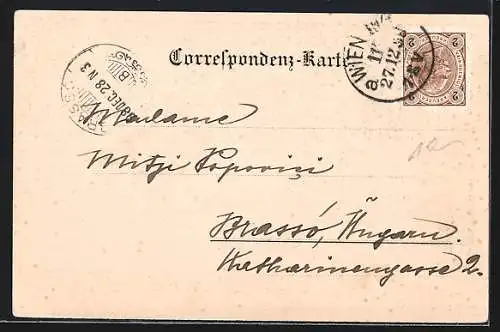 Correspondenz-Karte
WIEN
27.12.98
BRASSÓ
98 DEC. 28 N3
Madame
Mitzi Popovici
Brassó, Ungarn.
Katharinengasse 2.
2
2